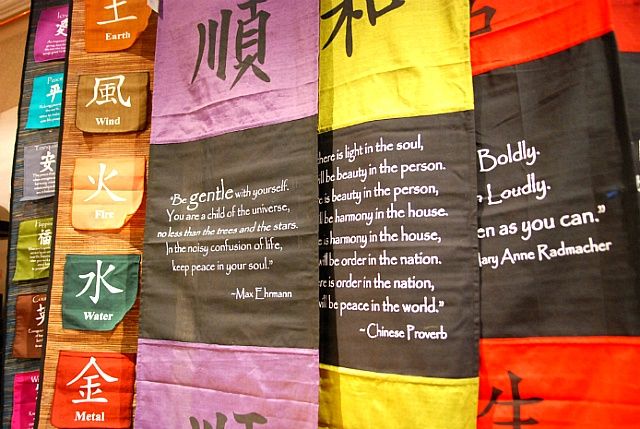 Love
愛
Peace
平
安
Happiness
福
土
Earth
風
Wind
火
Fire
水
Water
金
Metal
順
"Be gentle with yourself.
You are a child of the universe,
no less than the trees and the stars.
In the noisy confusion of life,
keep peace in your soul."
~Max Ehrmann
順
和
there is light in the soul,
ill be beauty in the person.
e is beauty in the person,
ill be harmony in the house.
e is harmony in the house,
will be order in the nation.
ere is order in the nation,
will be peace in the world."
~ Chinese Proverb
Boldly.
Loudly.
en as you can."
Mary Anne Radmacher
生